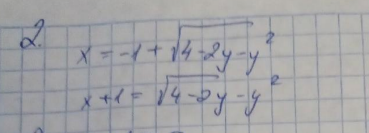 2.
x = -1 + √4-2y-y²
x+1 = √4-2y-y²